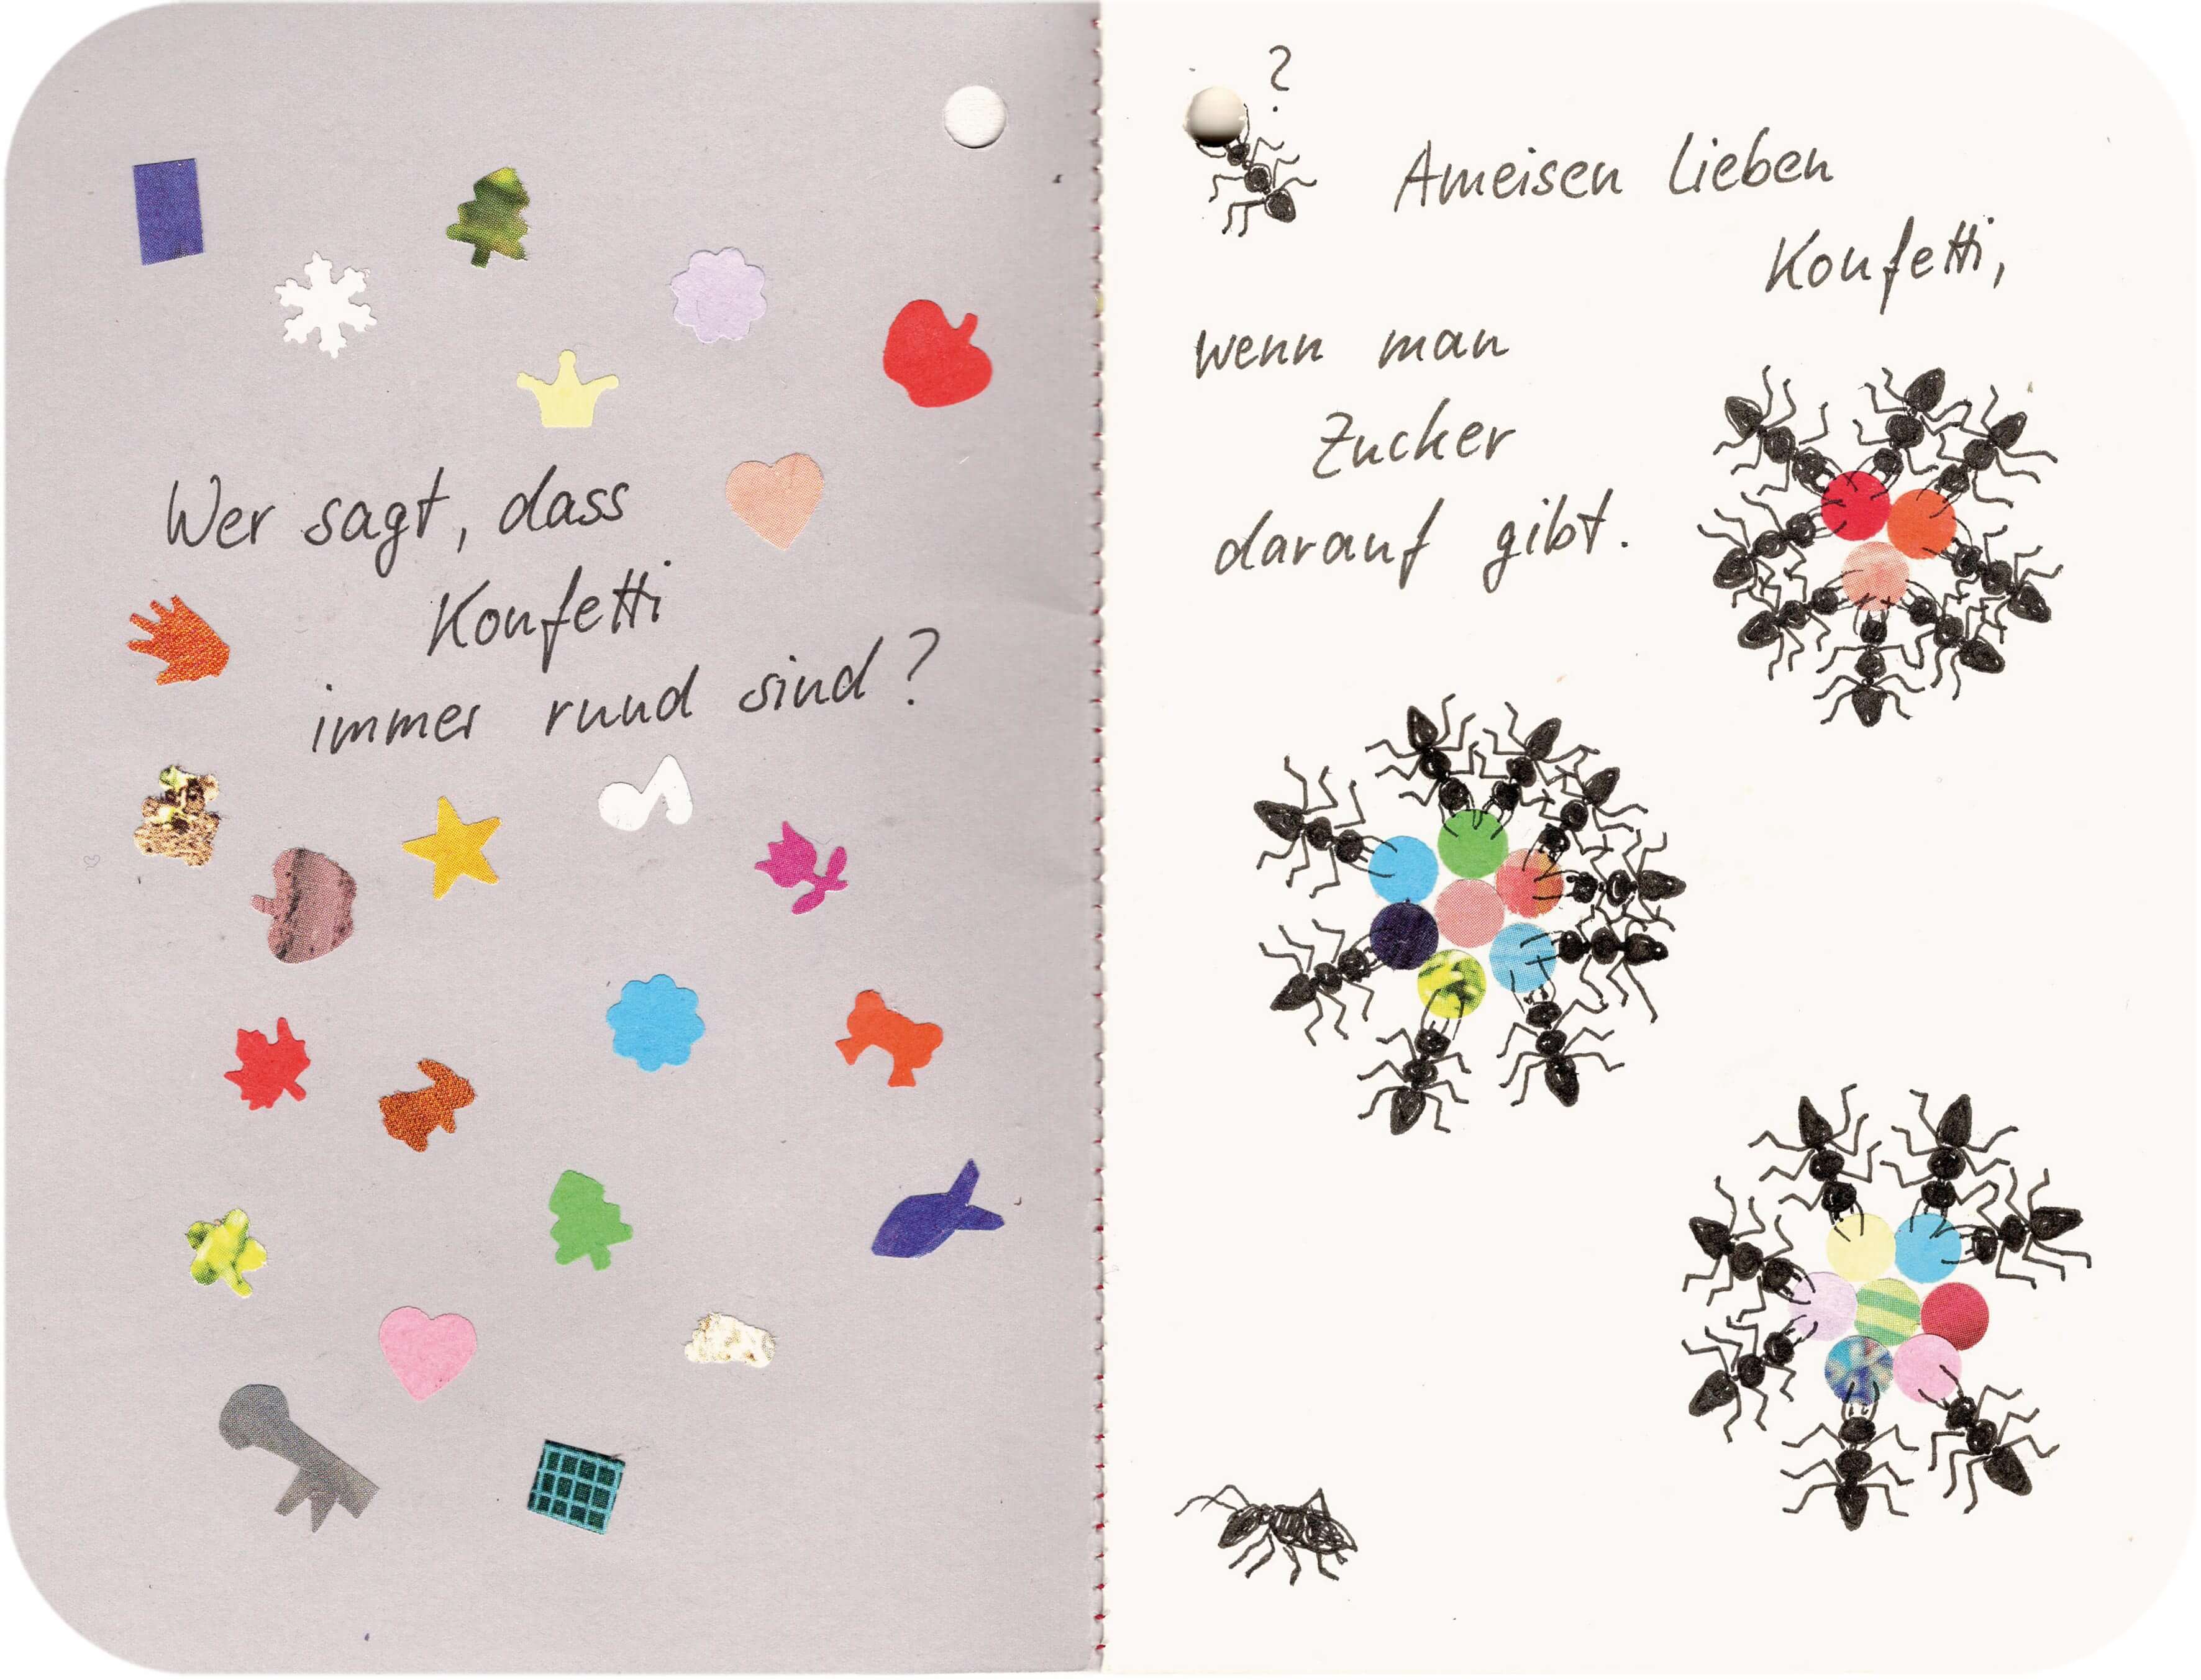 Wer sagt, dass
Konfetti
immer rund sind?
?
Ameisen lieben
Konfetti,
wenn man
Zucker
darauf gibt.